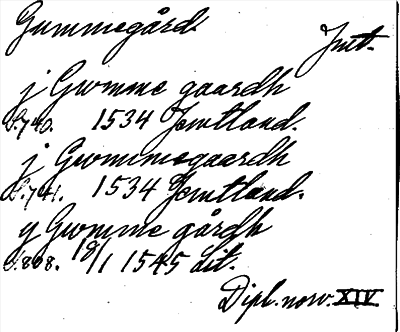 Gummegård.
Jmt.
j Gwomme gaardh
S. 740. 1534 Jemtland.
j Gwommegaardh
S. 741. 1534 Jemtland.
y Gwomme gårdh
S. 808. 18/1 1545 Lit.
Dipl. norv. XIV